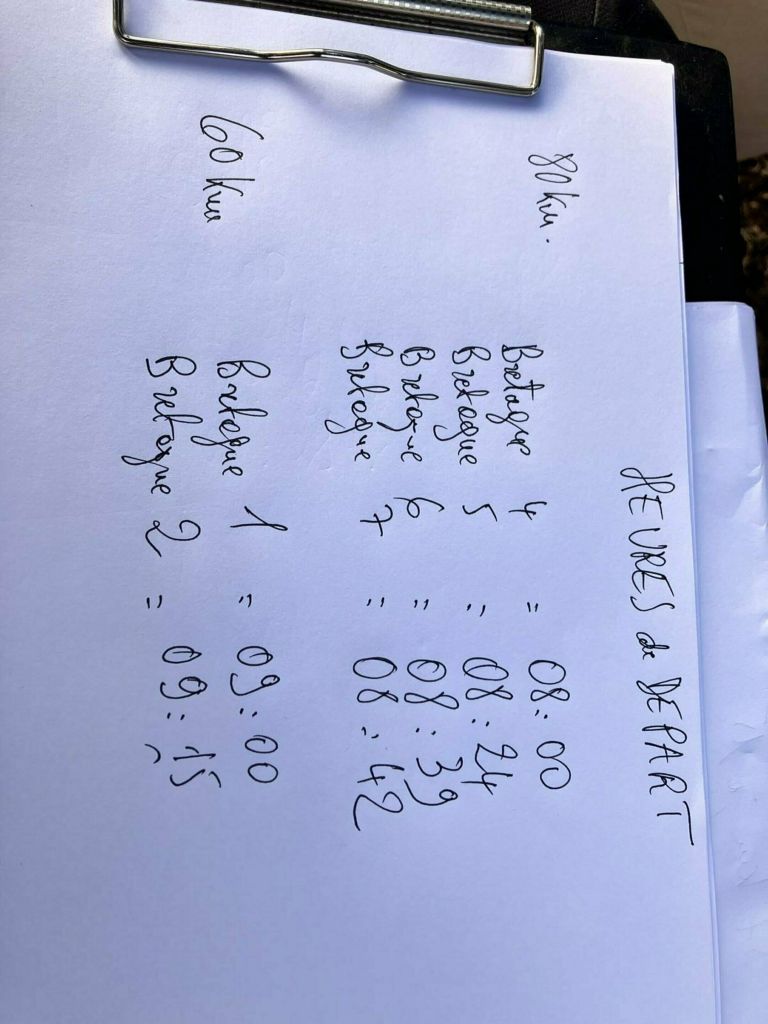 HEURES de DEPART
80 km. Bretagne 4 = 08:00
Bretagne 5 = 08:24
Bretagne 6 = 08:39
Bretagne 7 = 08:42
60 km Bretagne 1 = 09:00
Bretagne 2 = 09:15